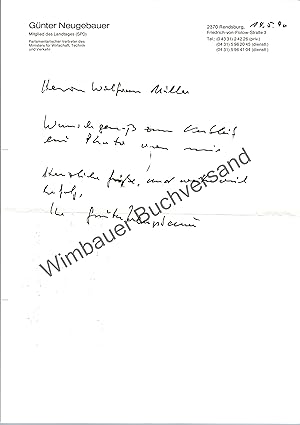 Günter Neugebauer
Mitglied des Landtages (SPD)
Parlamentarischer Vertreter des
Ministers für Wirtschaft, Technik
und Verkehr
2370 Rendsburg, 18.5.90
Friedrich-von-Flotow-Straße 3
Tel.: (0 43 31) 2 42 26 (priv.)
(04 31) 5 96 20 45 (dienstl.)
(04 31) 5 96 41 04 (dienstl.)
Herrn Wolfram Müller
Wunschgemäß zum Verbleib
ein Photo von mir
Herzliche Grüße, und
Ihr Günter Neugebauer
Wimbauer Buchversand